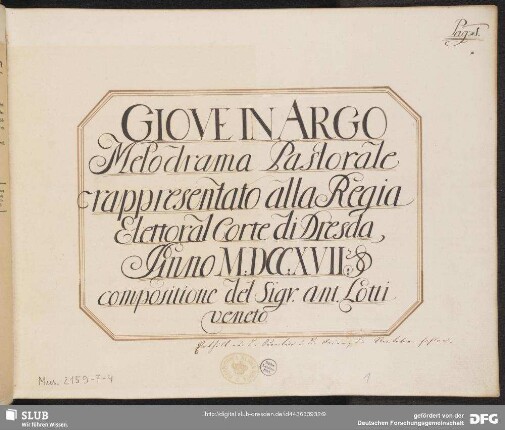 Pag. 1.
GIOVE IN ARGO
Melodrama Pastorale
rappresentato alla Regia
Elettoral Corte di Dresda,
Anno M.DCCXVII.
compositione del Sigr. ant. Lotti
veneto
Mus. 2159-F-4
1
SLUB
Wir führen Wissen.
http://digital.slub-dresden.de/id442652932/9
gefördert von der
Deutschen Forschungsgemeinschaft
DFG